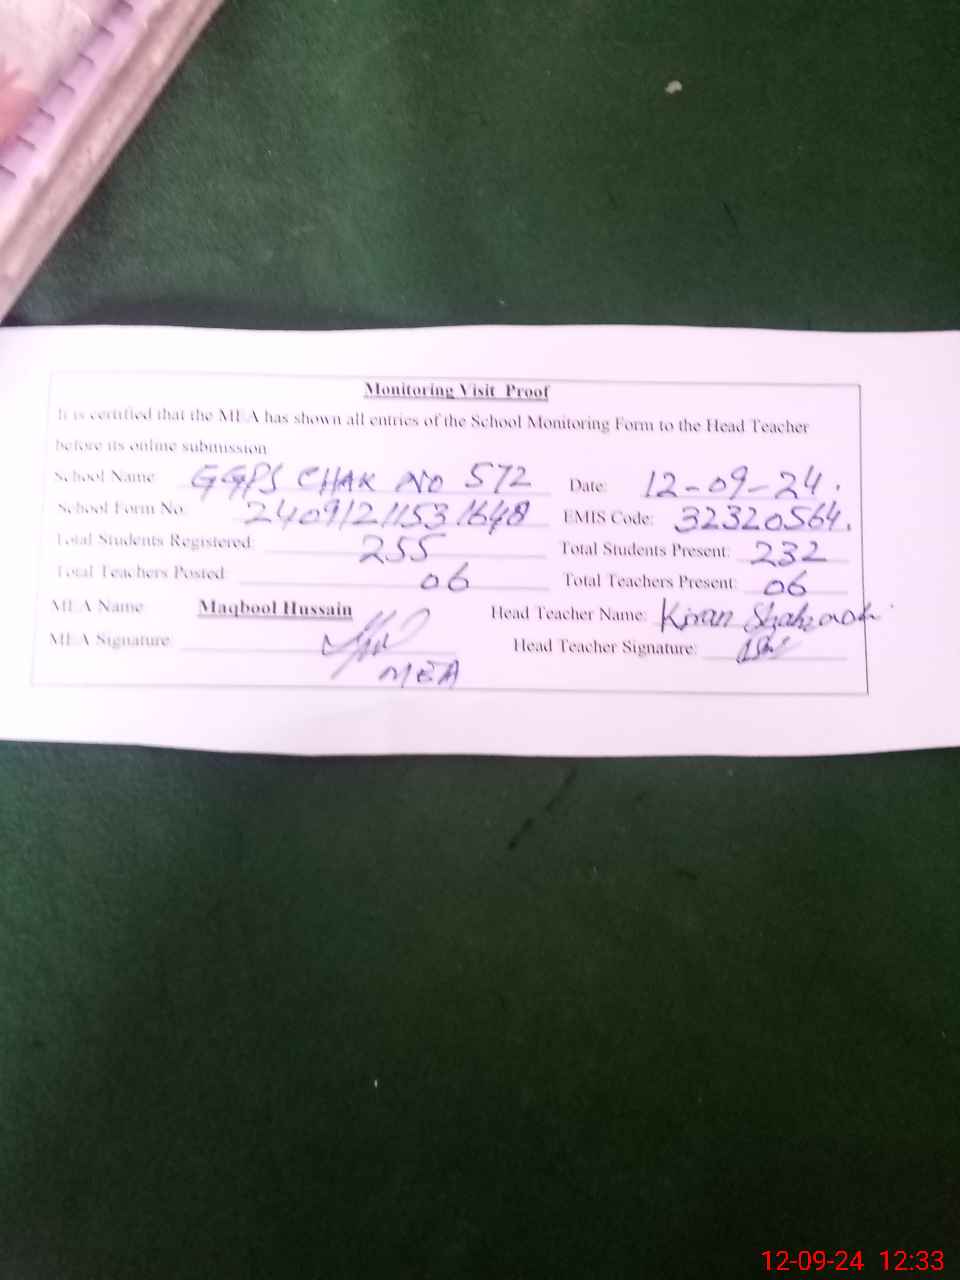 Monitoring Visit Proof
It is certified that the MEA has shown all entries of the School Monitoring Form to the Head Teacher
before its online submission
School Name GGPS CHAK NO 572 Date: 12-09-24.
School Form No: 24091211531648 EMIS Code: 32320564.
Total Students Registered: 255 Total Students Present: 232
Total Teachers Posted: 06 Total Teachers Present: 06
MEA Name Maqbool Hussain Head Teacher Name: Kiran
MEA Signature: Head Teacher Signature:
MEA
12-09-24 12:33